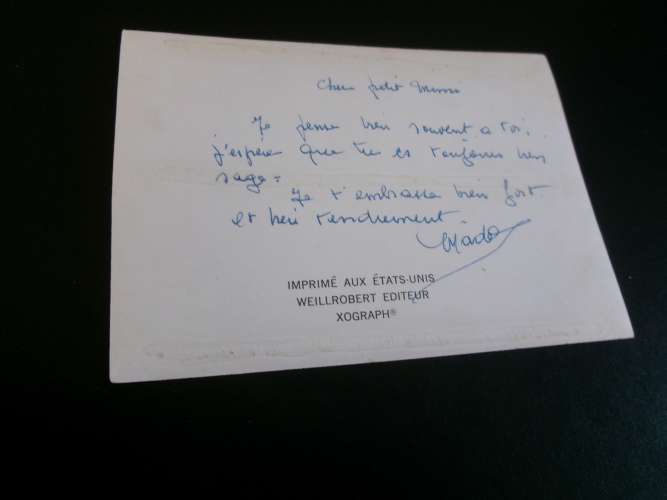 Cher petit Mimi
Je pense bien souvent a toi.
j'espère que tu es toujours bien
sage.
Je t'embrasse bien fort
et bien tendrement.
Mado
IMPRIMÉ AUX ÉTATS-UNIS
WEILLROBERT EDITEUR
XOGRAPH®